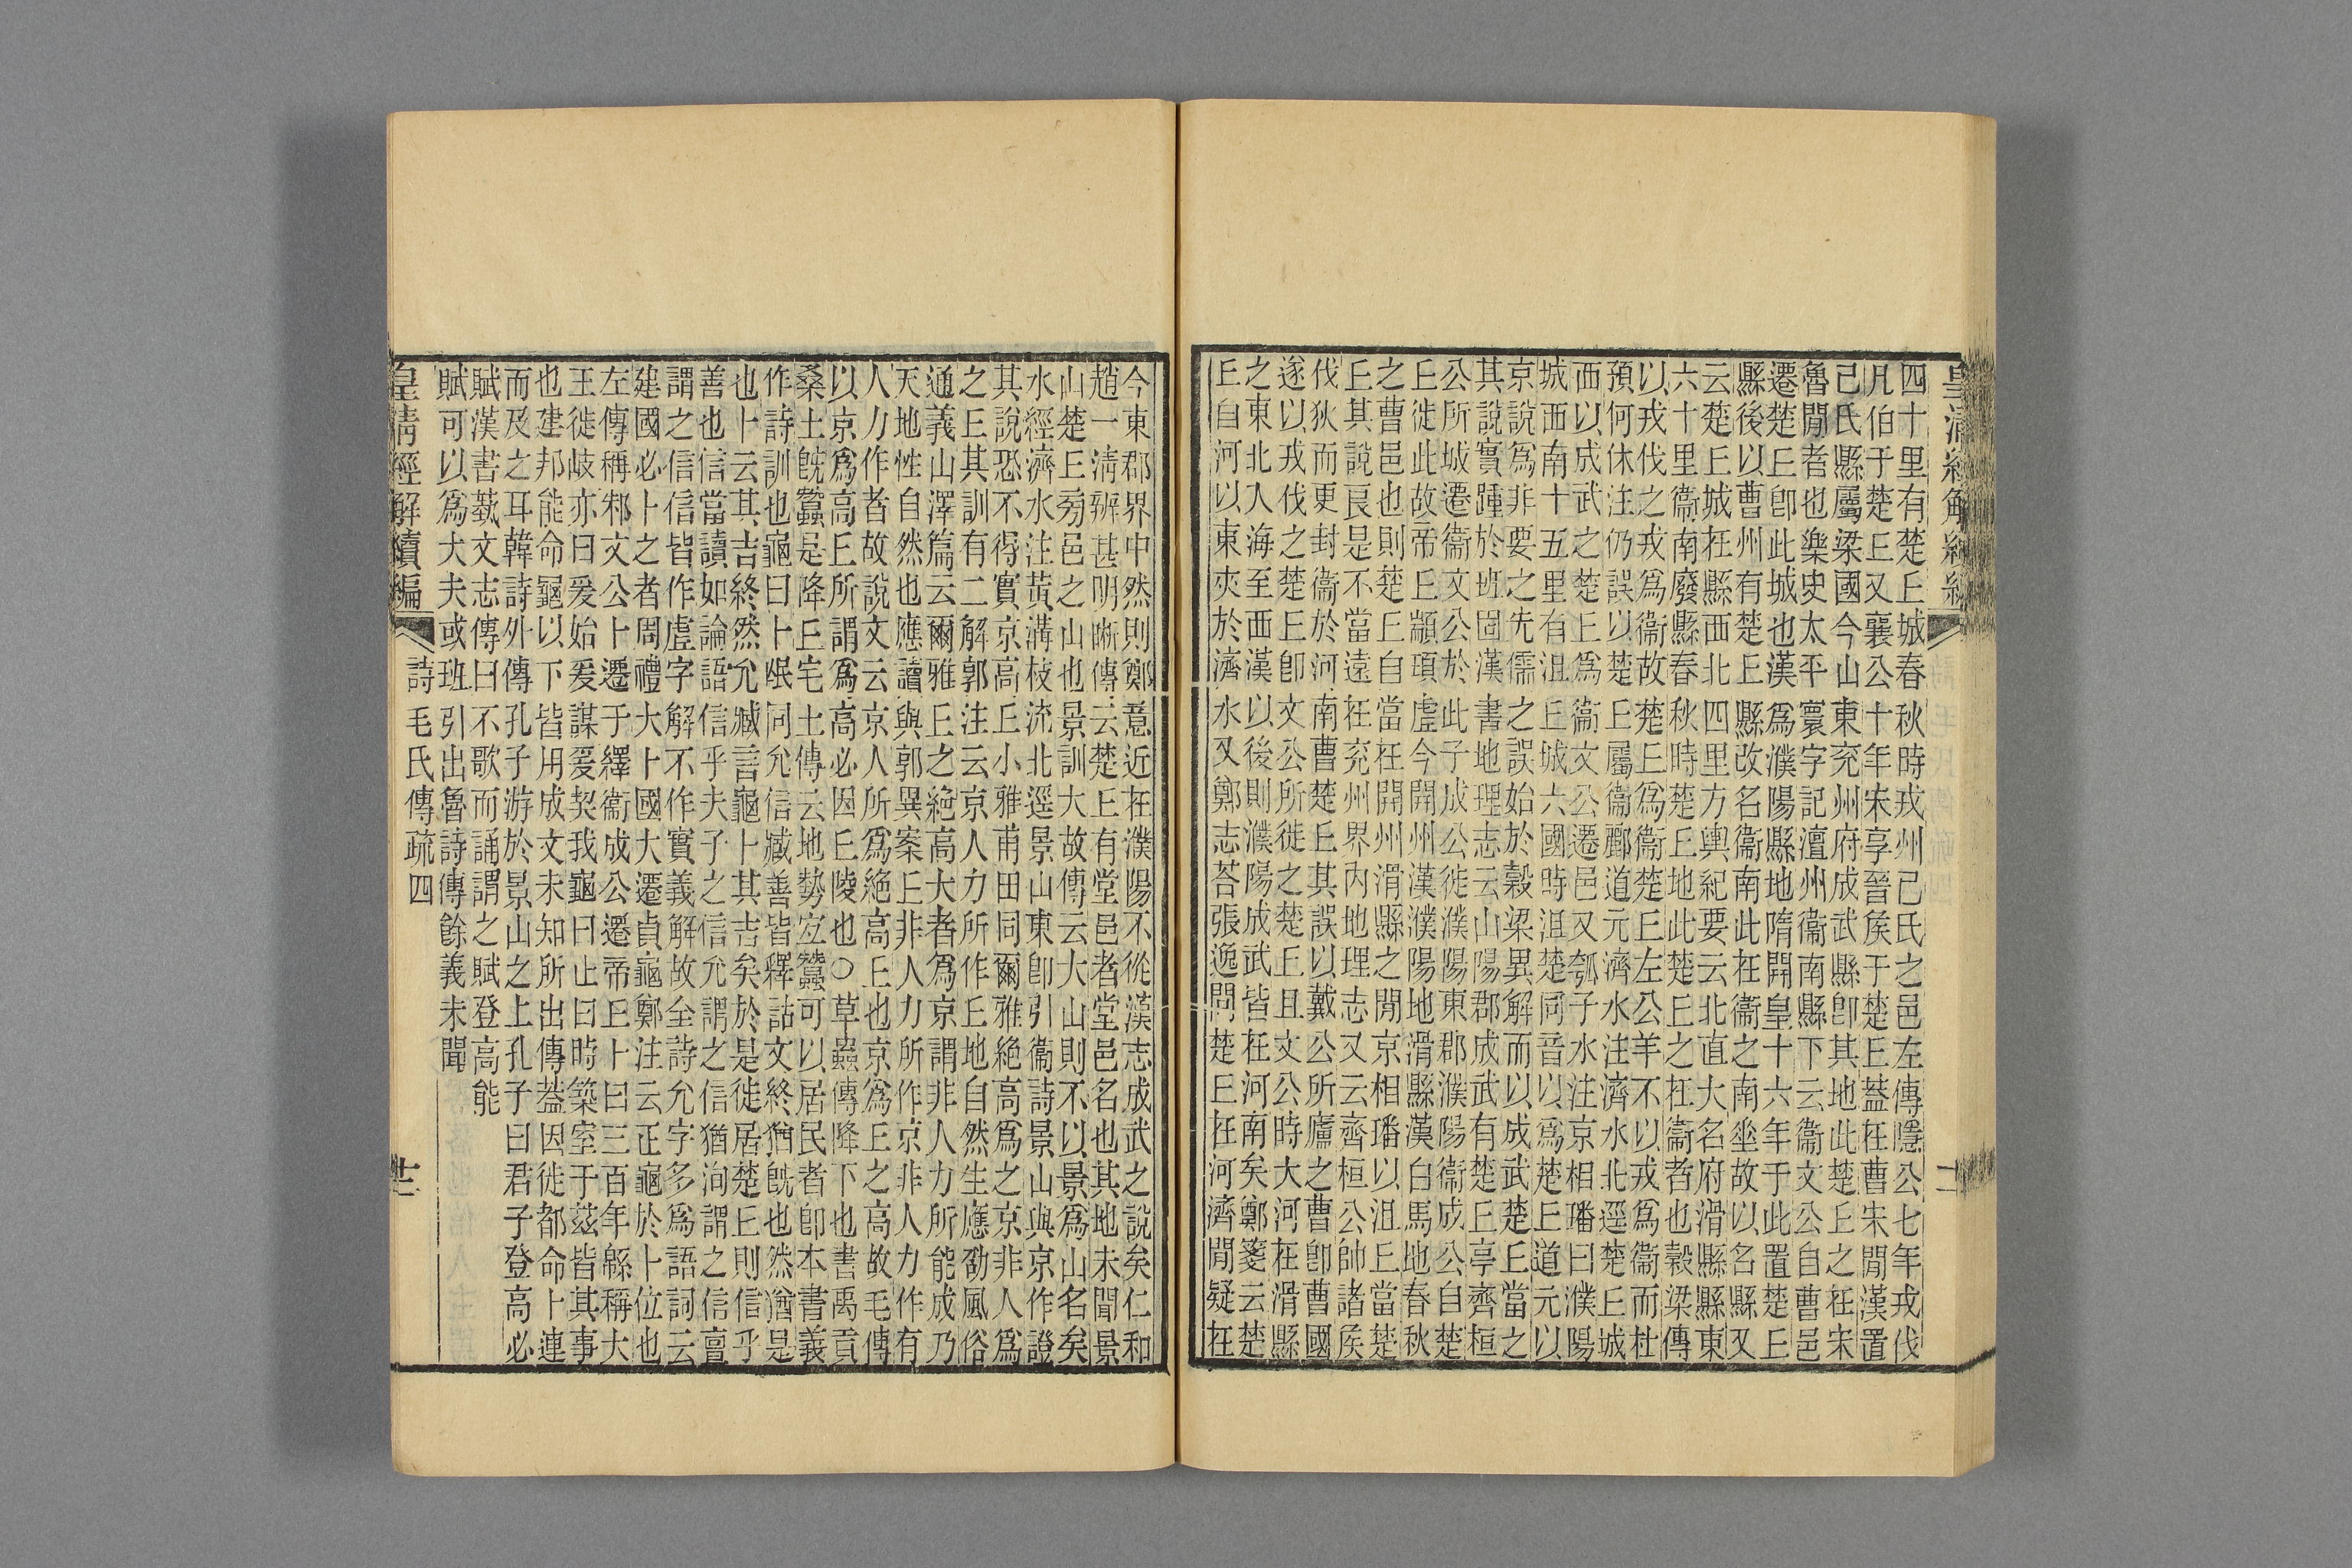 皇清經解續編
四十里有楚𠀉城春秋時戎州己氏之邑左傳隱公七年戎伐
凡伯于楚𠀉又襄公十年宋享晉矦于楚𠀉蓋在曹宋閒漢置
己氏縣屬梁國今山東兖州府成武縣卽其地此楚𠀉之在宋
魯閒者也樂史太平寰宇記澶州衞南縣下云衞文公自曹邑
遷楚𠀉卽此城也漢爲濮陽縣地隋開皇十六年于此置楚𠀉
縣後以曹州有楚𠀉縣改名衞南此在衞之南垂故以名縣又
云楚𠀉城在縣西北四里方輿紀要云北直大名府滑縣縣東
六十里衞南廢縣春秋時楚𠀉地此楚𠀉之在衞者也穀梁傳
以戎伐之戎爲衞故楚𠀉爲衞楚𠀉左公羊不以戎爲衞而杜
預何休注仍誤以楚𠀉屬衞酈道元濟水注濟水北逕楚𠀉城
西以成武之楚𠀉爲衞文公遷邑又瓠子水注京相璠曰濮陽
城西南十五里有沮𠀉城六國時沮楚同音以爲楚𠀉道元以
京說爲非要之先儒之誤始於穀梁異解而以成武楚𠀉當之
其說實踵於班固漢書地理志云山陽郡成武有楚𠀉亭齊桓
公所城遷衞文公於此子成公徙濮陽東郡濮陽衞成公自楚
𠀉徙此故帝𠀉顓頊虛今開州漢濮陽地滑縣漢白馬地春秋
之曹邑也則楚𠀉自當在開州滑縣之閒京相璠以沮𠀉當楚
𠀉其說良是不當遠在兖州界內地理志又云齊桓公帥諸矦
伐狄而更封衞於河南曹楚𠀉其誤以戴公所廬之曹卽曹國
遂以戎伐之楚𠀉卽文公所徙之楚𠀉且文公時大河在滑縣
之東北入海至西漢以後則濮陽成武皆在河南矣鄭箋云楚
𠀉自河以東夾於濟水又鄭志荅張逸問楚𠀉在河濟閒疑在
今東郡界中然則鄭意近在濮陽不從漢志成武之說矣仁和
趙一淸辨甚明晰傳云楚𠀉有堂邑者堂邑名也其地未聞景
山楚𠀉旁邑之山也景訓大故傳云大山則不以景爲山名矣
水經濟水注黃溝枝流北逕景山東卽引衞詩景山與京作證
其說恐不得實京高𠀉小雅甫田同爾雅絶高爲之京非人爲
之𠀉其訓有二解郭注云京人力所作𠀉地自然生應劭風俗
通義山澤篇云爾雅𠀉之絶高大者爲京謂非人力所能成乃
天地性自然也應讀與郭異案𠀉非人力所作京非人力作有
人力作者故說文云京人所爲絶高𠀉也京爲𠀉之高故毛傳
以京爲高𠀉所謂爲高必因𠀉陵也○草蟲傳降下也書禹貢
桑土旣蠶是降𠀉宅土傳云地勢宜蠶可以居民者卽本書義
作詩訓也龜曰卜㞒同允信臧善皆釋詁文終猶旣也然猶是
也卜云其吉終然允臧言龜卜其吉矣於是徙居楚𠀉則信乎
善也信當讀如論語信乎夫子之信允謂之信猶洵謂之信亶
謂之信信皆作虛字解不作實義解故全詩允字多爲語詞云
建國必卜之者周禮大卜國大遷貞龜鄭注云正龜於卜位也
左傳稱邾文公卜遷于繹衞成公遷帝𠀉卜曰三百年緜稱大
王徙岐亦曰爰始爰謀爰契我龜曰止曰時築室于茲皆其事
也建邦能命龜以下皆用成文未知所出傳蓋因徙都命卜連
而及之耳韓詩外傳孔子游於景山之上孔子曰君子登高必
賦漢書蓺文志傳曰不歌而誦謂之賦登高能
賦可以爲大夫或班引出魯詩傳餘義未聞
皇淸經解續編　詩毛氏傳疏四　十二